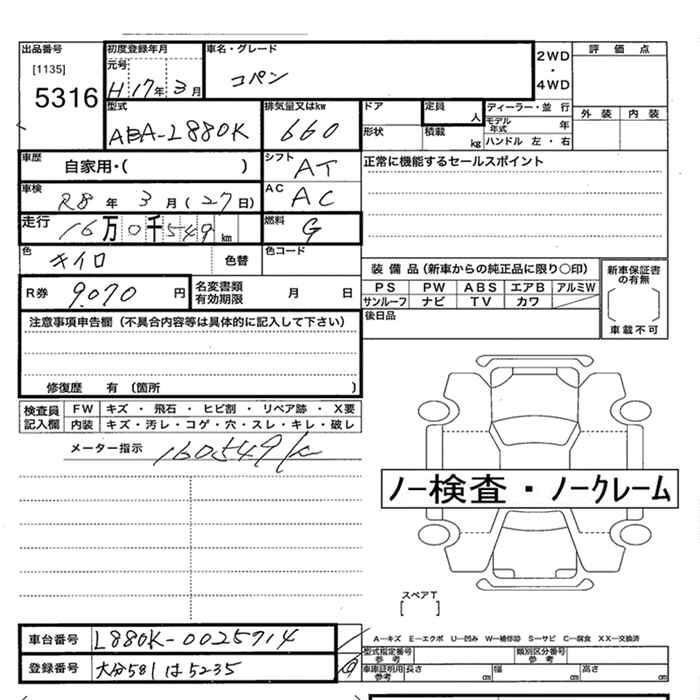 出品番号 初度登録年月 車名・グレード 2WD ・ 4WD 評価点
[1135] 元号 コペン
5316 H17年3月
型式 排気量又はkw ドア 定員 人 ディーラー・並行 外装 内装
ABA-L880K 660 形状 積載 kg モデル年式 年
ハンドル 左・右
車歴 自家用・( ) シフト AT 正常に機能するセールスポイント
車検 R8年3月(27日) AC AC
走行 16万0千549km 燃料 G
色 キイロ 色替 色コード
装備品(新車からの純正品に限り○印) 新車保証書の有無
R券 9.070円 名変書類有効期限 月 日 PS PW ABS エアB アルミW
サンルーフ ナビ TV カワ
注意事項申告欄(不具合内容等は具体的に記入して下さい) 後日品 車載不可
修復歴 有(箇所 )
検査員記入欄 FW キズ・飛石・ヒビ割・リペア跡・X要
内装 キズ・汚レ・コゲ・穴・スレ・キレ・破レ
メーター指示 160549K
ノー検査・ノークレーム
スペアT
[ ]
車台番号 L880K-0025714 A—キズ E—エクボ U—凹み W—補修跡 S—サビ C—腐食 XX—交換済
型式指定番号 参考 類別区分番号 参考
登録番号 大分581は5235 車庫証明用参考 長さ cm 幅 cm 高さ cm